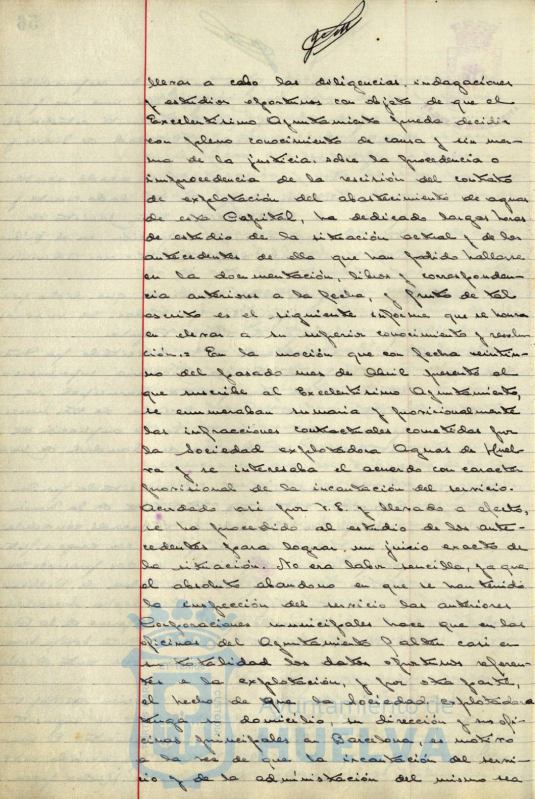 llevar a cabo las diligencias, indagaciones
y estudios oportunos con objeto de que el
Excelentísimo Ayuntamiento pueda decidir
con pleno conocimiento de causa y sin mer-
ma de la justicia, sobre la procedencia o
improcedencia de la rescisión del contrato
de explotación del abastecimiento de aguas
de esta Capital, ha dedicado largas horas
de estudio de la situación actual y de los
antecedentes de ella que han podido hallarse
en la documentación, libros y corresponden-
cia anteriores a la fecha, y fruto de tal
escrito es el siguiente informe que se honra
en elevar a su superior conocimiento y resolu-
ción.= En la moción que con fecha veintiu-
no del pasado mes de Abril presentó el
que suscribe al Excelentísimo Ayuntamiento,
se enumeraban sumaria y provisionalmente
las infracciones contractuales cometidas por
la Sociedad explotadora Aguas de Huel-
va y se interesaba el acuerdo con caracter
provisional de la incautación del servicio.
Acordado así por V.E. y llevado a efecto,
se ha procedido al estudio de los ante-
cedentes para lograr un juicio exacto de
la situación. No era labor sencilla, ya que
el absoluto abandono en que se han tenido
la inspección del servicio las anteriores
Corporaciones municipales hace que en las
oficinas del Ayuntamiento falten casi en
su totalidad los datos oportunos referen-
tes a la explotación, y por otra parte,
el hecho de que la Sociedad explotadora
tenga su domicilio, su dirección y sus ofi-
cinas principales en Barcelona, es motivo
a la vez de que la incautación del servi-
cio y de la administración del mismo sea
Ayuntamiento de
HUELVA
56